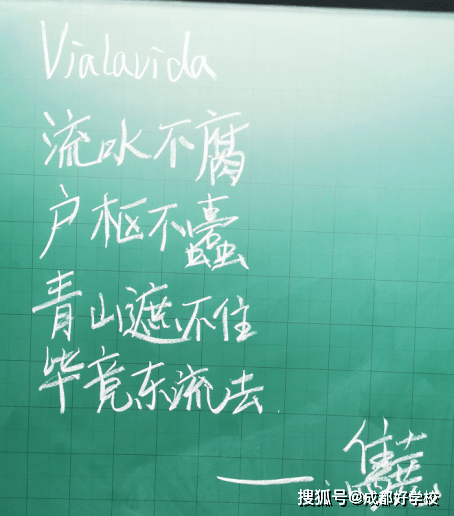 Vialavida
流水不腐
户枢不蠹
青山遮不住
毕竟东流去
搜狐号@成都好学校